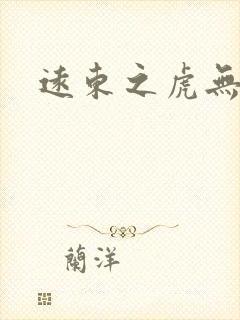 遠東之虎無
蘭洋